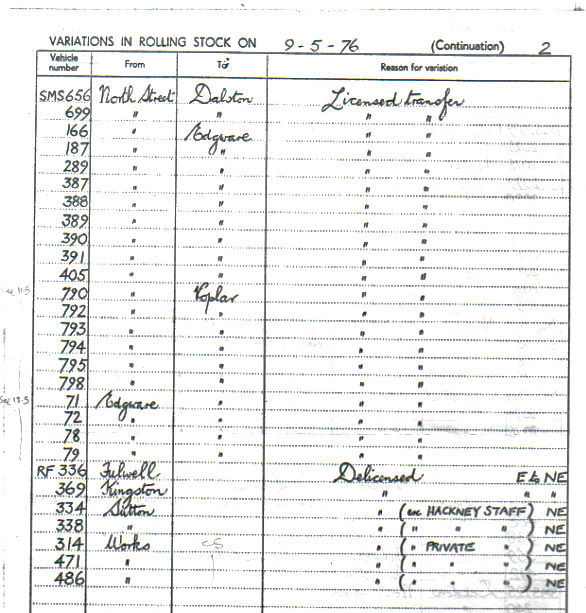 VARIATIONS IN ROLLING STOCK ON 9-5-76 (Continuation) 2
Vehicle number From To Reason for variation
SMS656 North Street Dalston Licensed transfer
699 " " " "
166 " Edgware " "
187 " " " "
289 " " " "
387 " " " "
388 " " " "
389 " " " "
390 " " " "
391 " " " "
405 " " " "
790 " Poplar " "
792 " " " "
793 " " " "
794 " " " "
795 " " " "
798 " " " "
71 Edgware " " "
72 " " " "
78 " " " "
79 " " " "
RF 336 Fulwell Delicensed E to NE
369 Kingston " " "
334 Sutton " (exc HACKNEY STAFF) NE
338 " " (" " ") NE
314 Works " (" PRIVATE ") NE
471 " " (" " ") NE
486 " " (" " ") NE